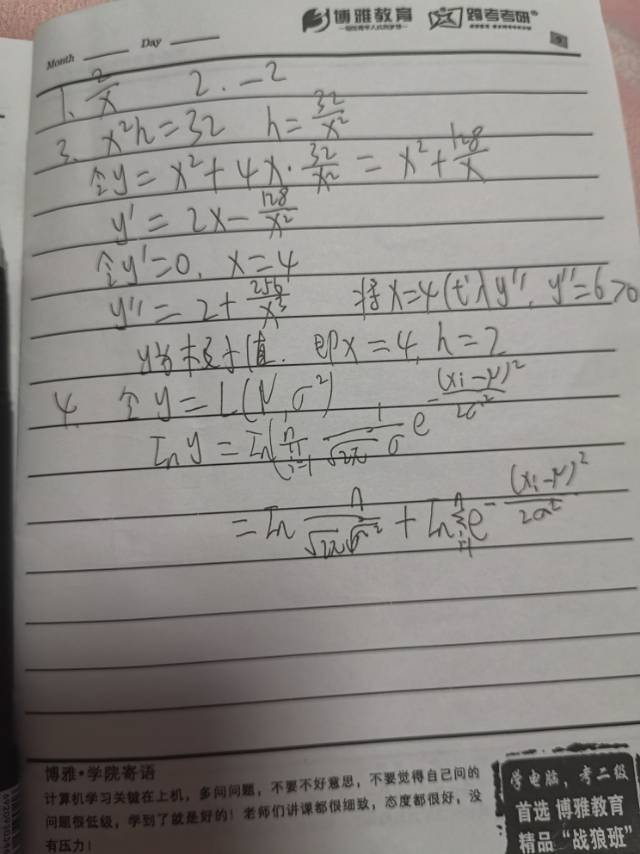 博雅教育 跨考考研
Month Day
1. 2/x 2. -2
3. x²h=32 h=32/x²
令y=x²+4x·32/x²=x²+128/x
y'=2x-128/x²
令y'=0, x=4
y''=2+256/x³ 将x=4代入y'', y''=6>0
y为极小值. 即x=4, h=2
4. 令y=L(μ,σ²)
In y=In(∏ⁿᵢ₌₁ 1/(√2π σ) e^-(xi-μ)²/2σ²
=In n/(√2π√σ²)+In∑ⁿᵢ₌₁e^-(xi-μ)²/2σ²
博雅·学院寄语
计算机学习关键在上机，多问问题，不要不好意思，不要觉得自己问的
问题很低级，学到了就是好的！老师们讲课都很细致，态度都很好，没
有压力！
学电脑，考二级
首选 博雅教育
精品“战狼班”